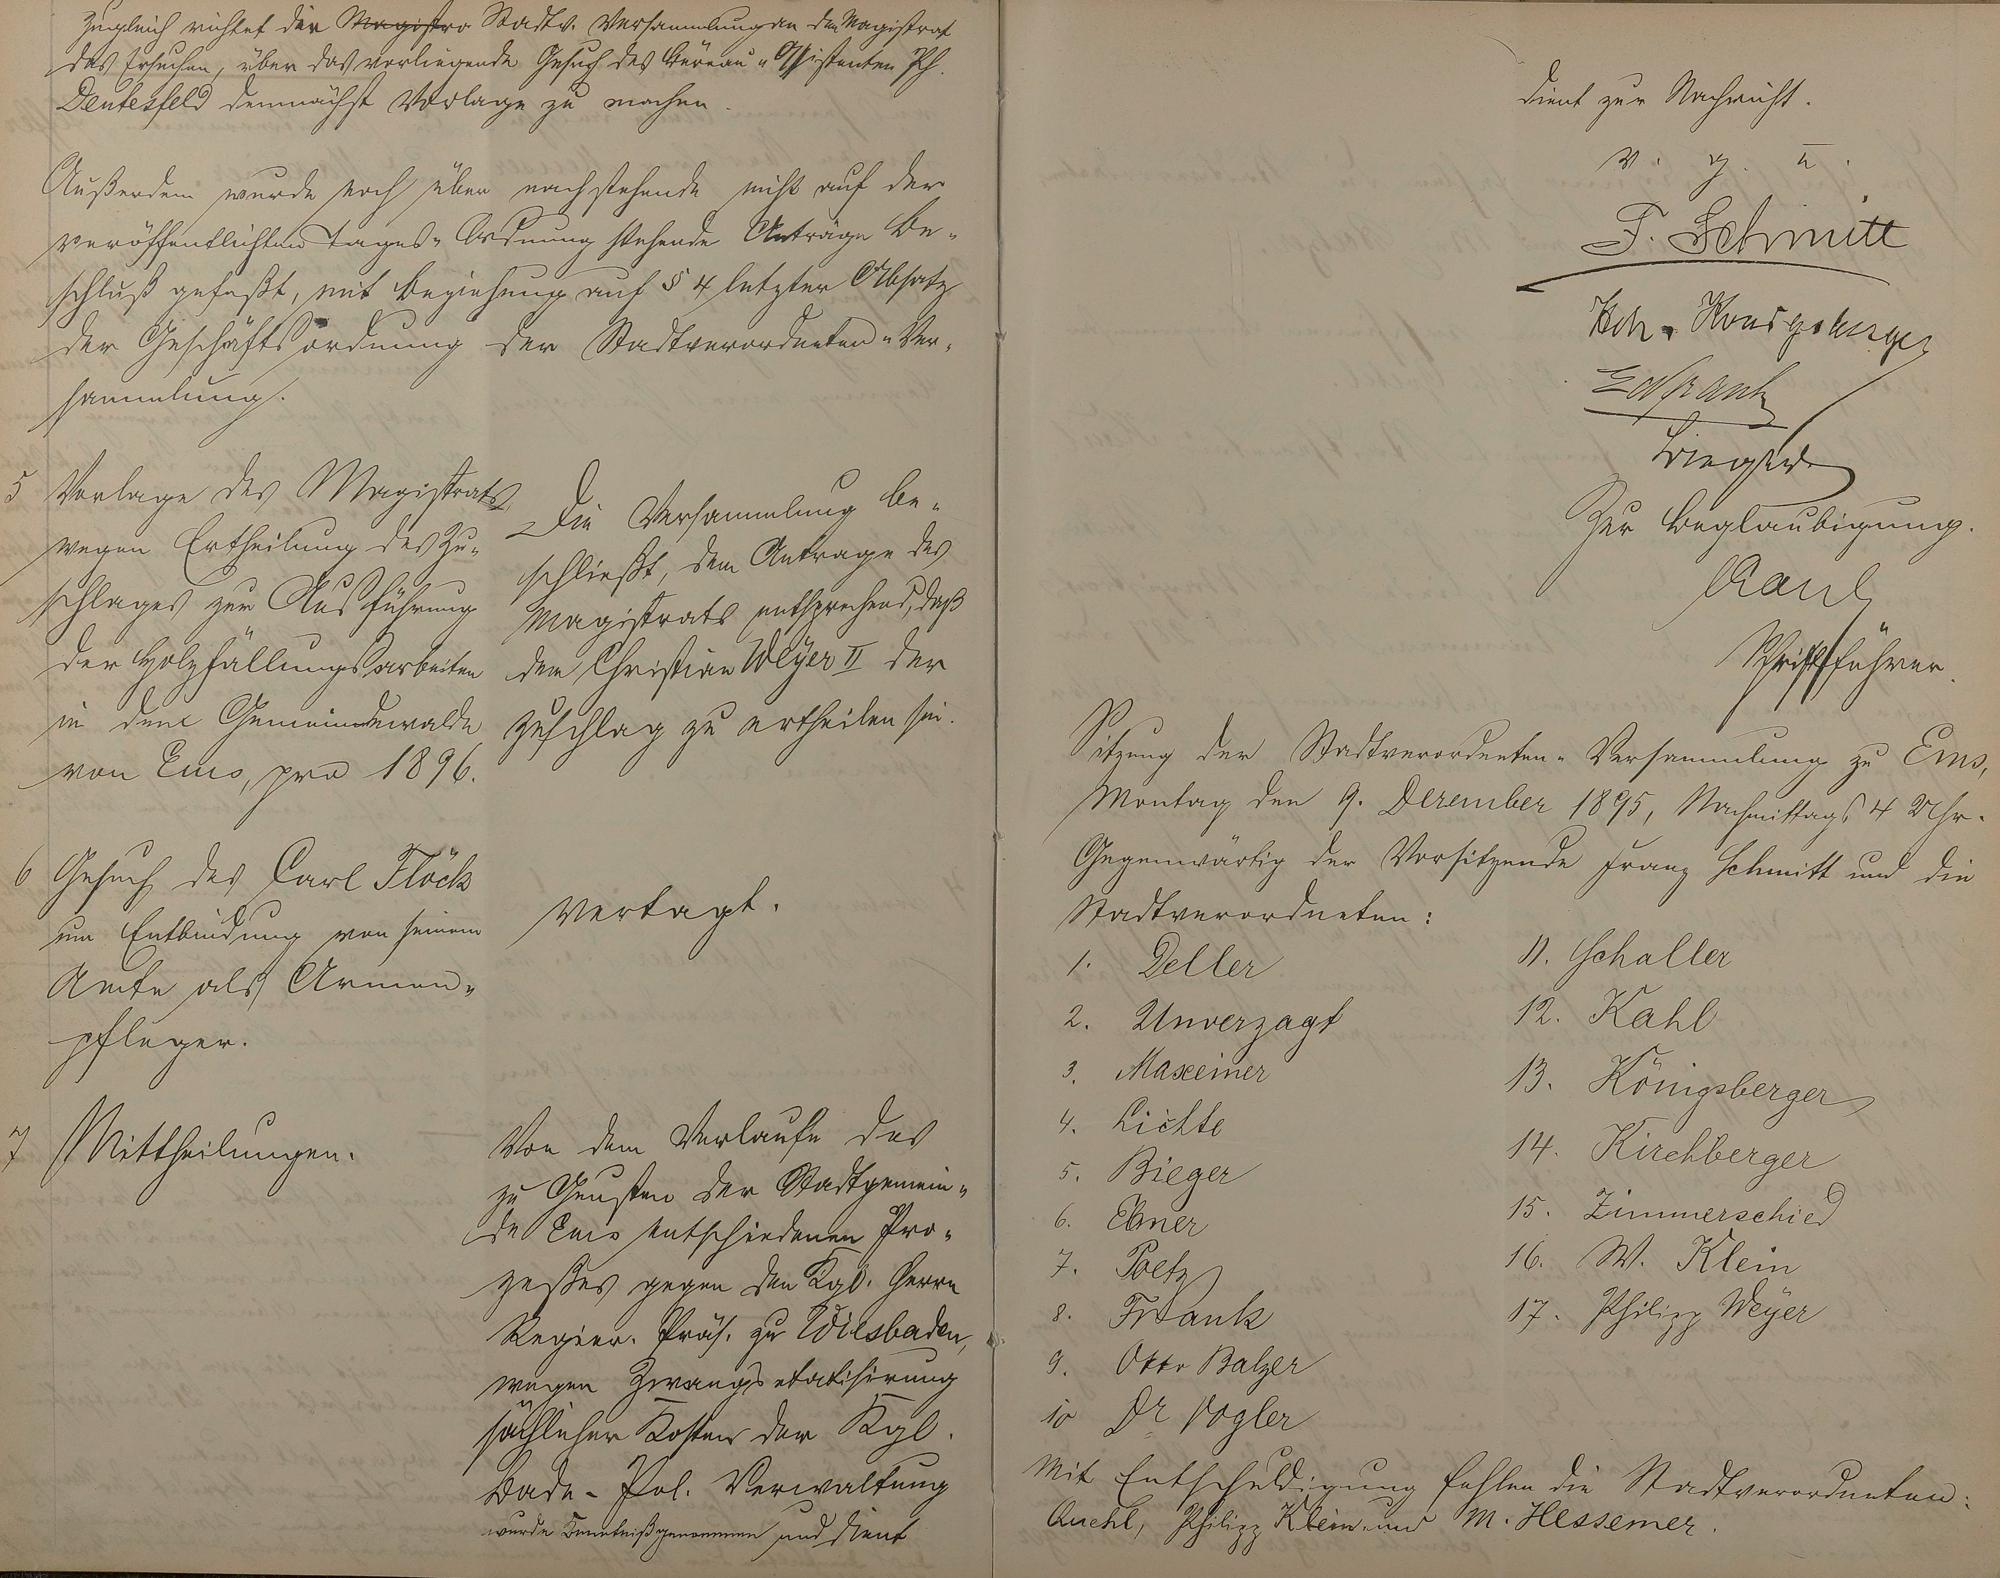 Zugleich richtet die Magistra Stadtv. Versammlung an den Magistrat
das Ersuchen, über das vorliegende Gesuch des Büreau-Assistenten Ph.
Deutesfeld demnächst Vorlage zu machen.
Außerdem wurde noch über nachstehende nicht auf der
veröffentlichten Tages-Ordnung stehende Anträge Be-
schluß gefaßt, mit Beziehung auf § 4 letzter Absatz
der Geschäftsordnung der Stadtverordneten-Ver-
sammlung.
5 Vorlage des Magistrats
wegen Ertheilung des Zu-
schlages zur Ausführung
der Holzfällungsarbeiten
in dem Gemeindewalde
von Ems, pro 1896.
Die Versammlung be-
schließt, dem Antrage des
Magistrats entsprechend, daß
dem Christian Weyer II der
Zuschlag zu ertheilen sei.
6 Gesuch des Carl Flöck
um Entbindung von seinem
Amte als Armen-
pfleger.
Vertagt.
7 Mittheilungen.
Von dem Verlaufe des
zu Gunsten der Stadtgemein-
de Ems entschiedenen Pro-
zeßes gegen den Kgl. Herrn
Regier. Präs. zu Wiesbaden,
wegen Zwangsetatisirung
sächlicher Kosten der Kgl.
Bade-Pol. Verwaltung
wurde Kenntniß genommen und dient
dient zur Nachricht.
v. g. u.
F. Schmitt
Hch. Königsberger
Ed Frank
Bieger
Zur Beglaubigung.
Kaul
Schriftführer.
Sitzung der Stadtverordneten-Versammlung zu Ems,
Montag den 9. Dezember 1895, Nachmittags 4 Uhr.
Gegenwärtig der Vorsitzende Franz Schmitt und die
Stadtverordneten:
1. Deller
2. Unverzagt
3. Maxeiner
4. Lichte
5. Bieger
6. Ebner
7. Poetz
8. Frank
9. Otto Balzer
10 Dr Vogler
11. Schaller
12. Kahl
13. Königsberger
14. Kirchberger
15. Zimmerschied
16. W. Klein
17. Philipp Weyer
Mit Entschuldigung fehlen die Stadtverordneten:
Quehl, Philipp Klein und M. Hessemer.